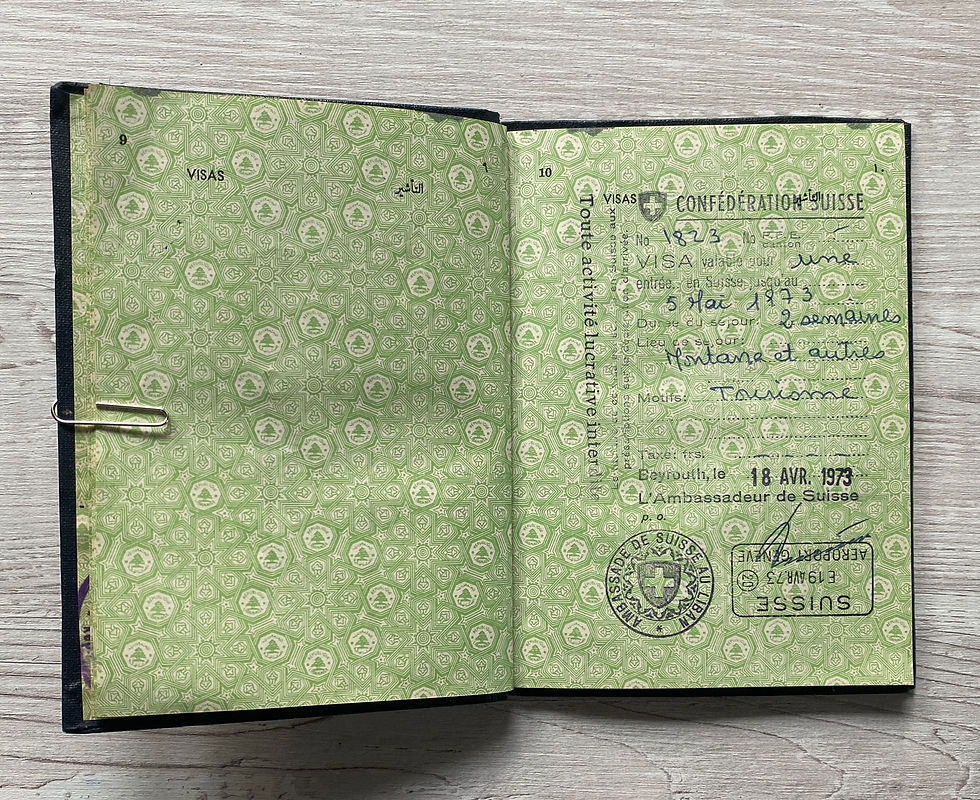 9
VISAS
التأشير
٩
10
١٠
VISAS
التأشير
CONFÉDÉRATION SUISSE
No 1823 No
canton
VISA valable pour une
entrée en Suisse jusqu'au
5 Mai 1973
Durée du séjour: 2 semaines
Lieu de séjour:
Montana et autres
Motifs: Tourisme
Taxe: frs.
Beyrouth, le 18 AVR. 1973
L'Ambassadeur de Suisse
p. o.
AMBASSADE DE SUISSE AU LIBAN
SUISSE
E 19 AVR. 73 (20)
AEROPORT GENÈVE
Toute activité lucrative inter
en Suisse aux